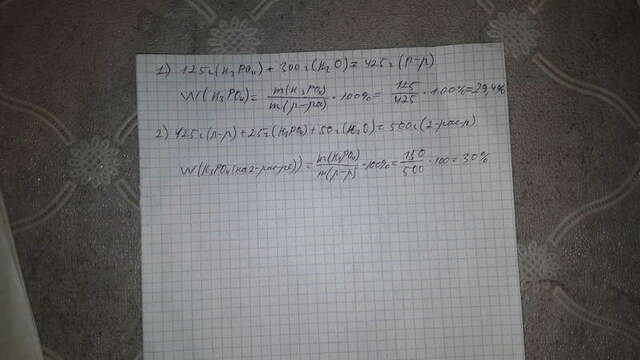 1) 125г (H₃PO₄) + 300г (H₂O) = 425г (р-р)
W (H₃PO₄) = m(H₃PO₄) / m(р-ра) · 100% = 125 / 425 · 100% = 29,4%
2) 425г (р-р) + 25г (H₃PO₄) + 50г (H₂O) = 500г (2-рас-р)
W (H₃PO₄ = m(H₃PO₄) / m(р-р) · 100% = 150 / 500 · 100 = 30%